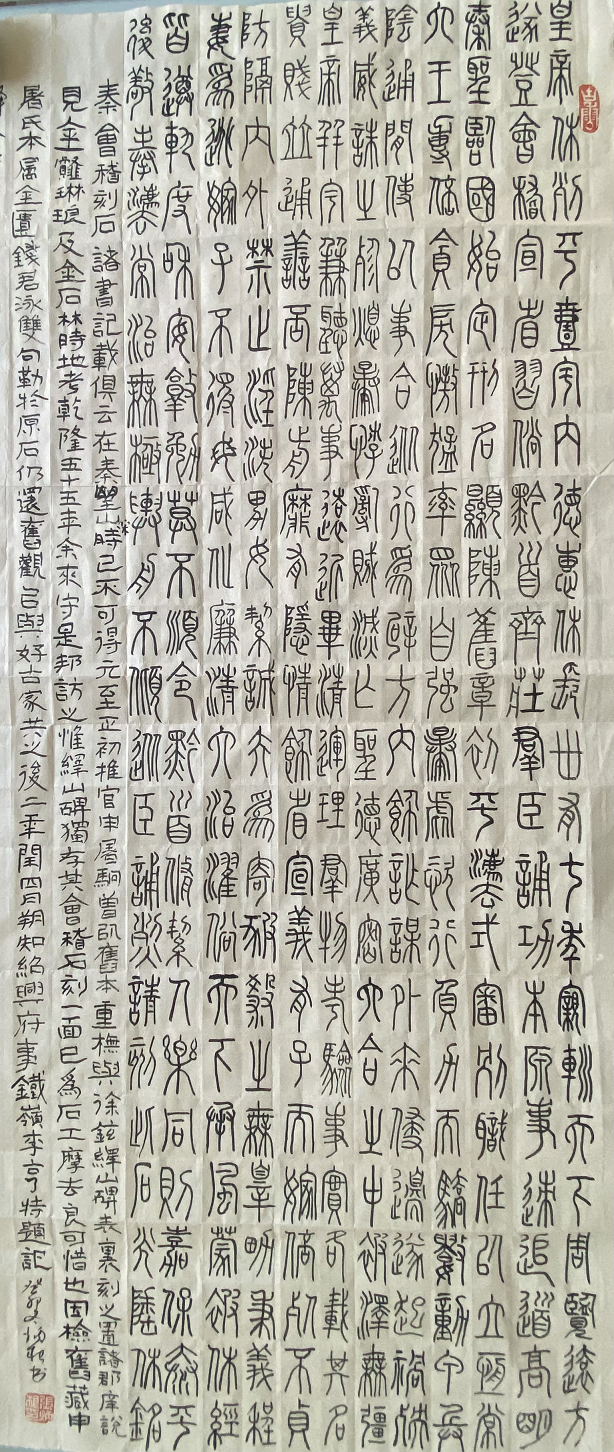 皇帝休烈平壹宇內德惠攸長丗有七年親巡天下周覽遠方
遂登會稽宣省習俗黔首齊莊羣臣誦功本原事速追道高明
秦聖臨國始定刑名顯陳舊章初平灋式審別職任以立恆常
六王專倍貪戾慠猛率眾自強暴虐恣行負力而驕數動甲兵
陰通閒使以事合從行為辟方內飾詐謀外來侵邊遂起禍殃
義威誅之殄熄暴悖亂賊滅亡聖德廣密六合之中被澤無疆
皇帝并宇兼聽萬事遠近畢清運理羣物考驗事實各載其名
貴賤並通善否陳前靡有隱情飾省宣義有子而嫁倍死不貞
防隔內外禁止淫泆男女絜誠夫為寄豭殺之無辠男秉義程
妻為逃嫁子不得母咸化廉清大治濯俗天下承風蒙被休經
皆遵軌度和安敦勉莫不順令黔首脩絜人樂同則嘉保泰平
後敬奉灋常治無極輿舟不傾從臣誦烈請刻此石光陲休銘
秦會稽刻石諸書記載俱云在秦望山時已不可得元至正初推官申屠駉曾以舊本重撫與徐鉉繹山碑表裏刻之置諸郡庠說
見金薤琳琅及金石林時地考乾隆五十五年余來守是邦訪之惟繹山碑獨存其會稽石刻一面已為石工摩去良可惜也因檢舊藏申
屠氏本屬金匱錢君泳雙勾勒於原石仍還舊觀以與好古家共之後二年閏四月朔知紹興府事鐵嶺李亨特題記
癸卯冬 書